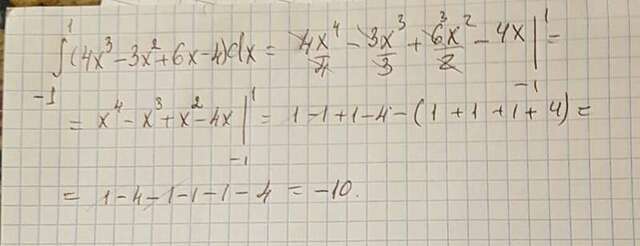 ∫₋₁¹ (4x³ - 3x² + 6x - 4)dx = 4x⁴/4 - 3x³/3 + 6³x²/2 - 4x |₋₁¹ =
= x⁴ - x³ + x² - 4x |₋₁¹ = 1 - 1 + 1 - 4 - (1 + 1 + 1 + 4) =
= 1 - 4 - 1 - 1 - 1 - 4 = -10.